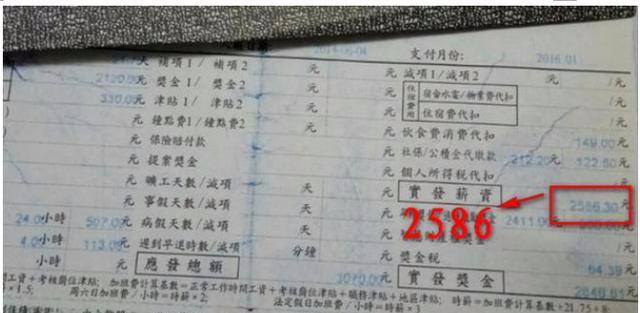 支付月份: 2016.01
天 補項1/ 補項2 元 元 減項1/減項2 /元
2120.00元 獎金1/ 獎金2 元 元 住宿費用 宿舍水電/物業費代扣
330.00元 津貼1/ 津貼2 元 元 住宿費代扣 元
元 鐘點費1/鐘點費2 元 元 伙食費消費代扣 149.00元
元 保險賠付款 元 社保/公積金代繳款 212.20元 122.50元
元 提案獎金 元 個人所得税代扣 元
元 曠工天數/減項 天 元 實發薪資 2586.30元
元 事假天數/減項 天 2586 2411.00元
24.00小時 507.0元 病假天數/減項 天 元 獎金 元
4.00小時 113.0元 遲到早退時數/減項 分鐘 元 獎金税 64.39元
元 應發總額 3070.0元 實發獎金 2646.61元
工資+考核崗位津貼; 加班費計算基數=正常工作時間工資+考核崗位津貼+職務津貼+地區津貼; 時薪=加班費計算基數÷21.75÷8;
*1.5; 周六日加班費/小時=時薪*2; 法定假日加班費/小時=時薪*3